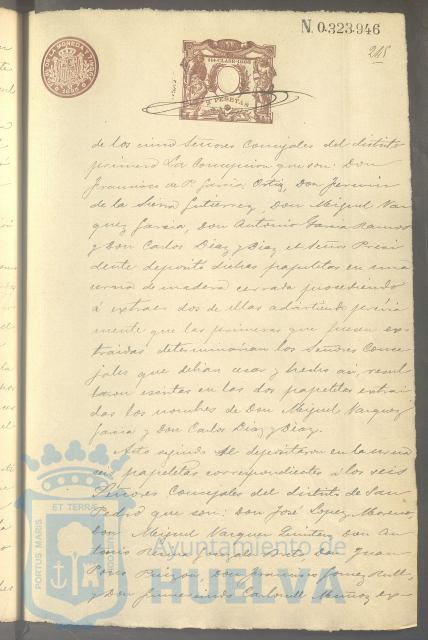 N. 0.323.946
215
11ª CLASE 1908
2 PESETAS
de los cinco Señores Concejales del distrito
primero La Concepcion que son: Don
Francisco de P. Garcia Ortiz, Don Jeremin
de la Sierra Gutierrez, Don Miguel Vaz
quez Garcia, Don Antonio Garcia Ramos
y Don Carlos Diaz y Diaz el Señor Presi
dente depositó dichas papeletas en una
urna de madera cerrada procediendo
á extraer dos de ellas advirtiendo prévia
mente que las primeras que fuesen ex
traidas determinarian los Señores Conce
jales que debian cesar y hecho asi, resul
taron escritas en las dos papeletas extrai
das los nombres de Don Miguel Vazquez
Garcia y Don Carlos Diaz y Diaz.
Acto seguido se depositaron en la urna
seis papeletas correspondientes á los seis
Señores Concejales del distrito de San
Pedro que son: Don José Lopez Moreno,
Don Miguel Vazquez Don An
tonio Don Juan
Don Francisco Gomez
y Don Gumersindo Carbonell Muñoz ex-
ET TERRAE
PORTUS MARIS
CUSTODIA
Ayuntamiento de
HUELVA